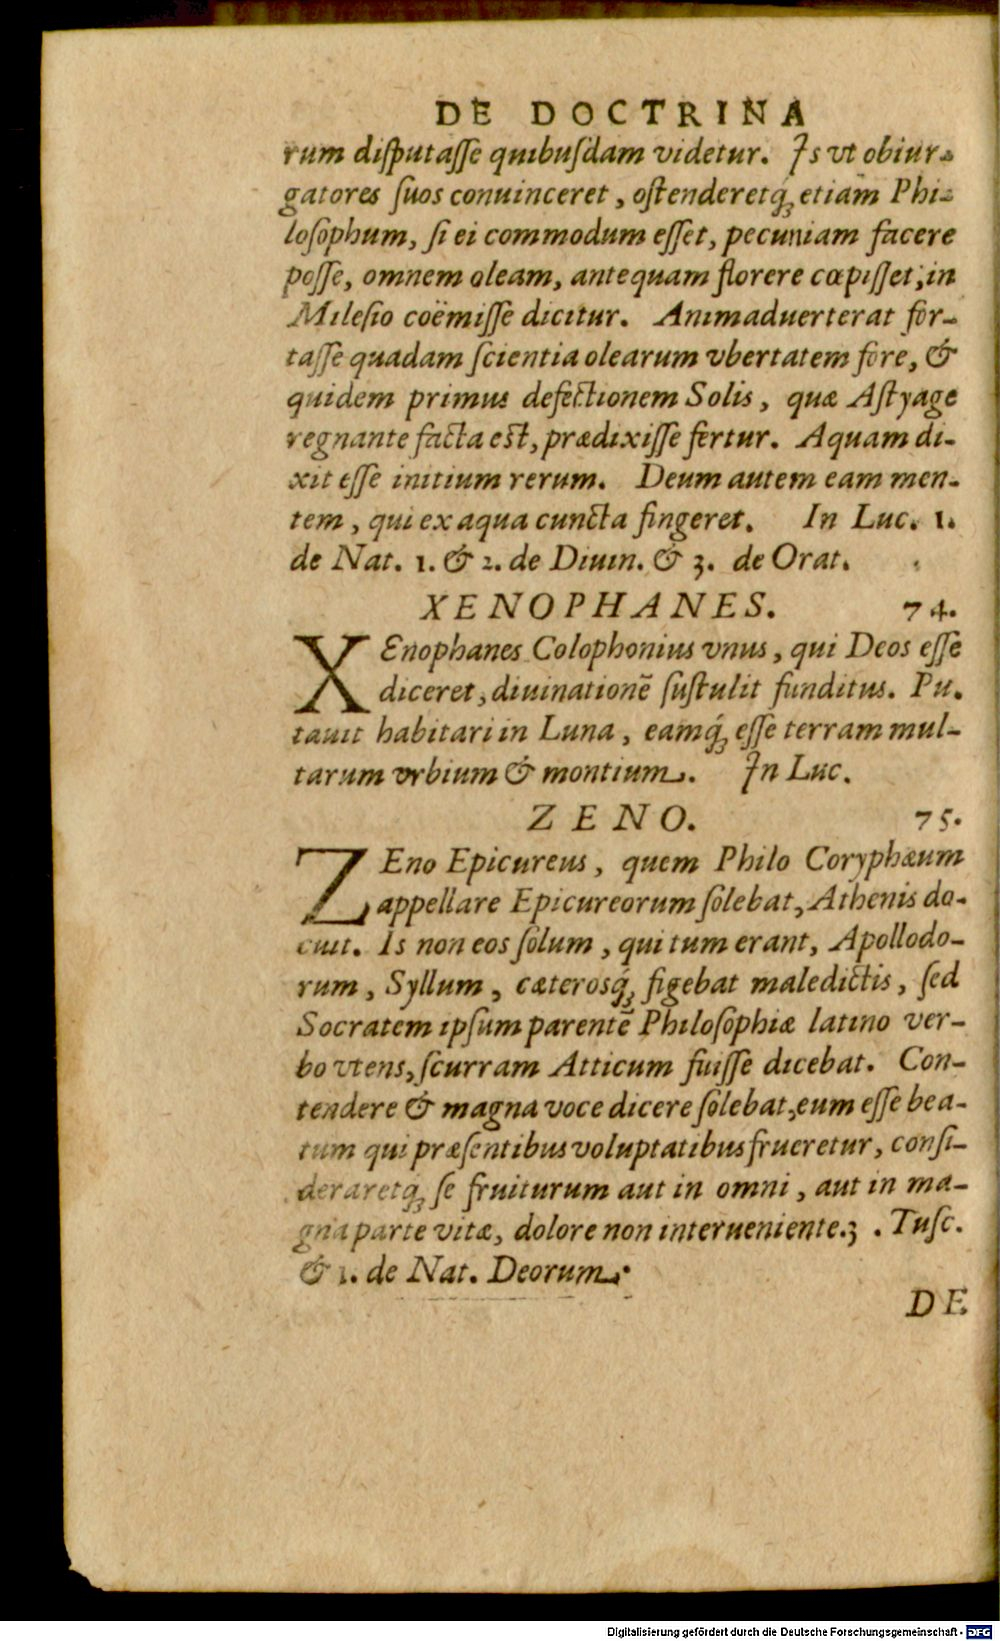 DE DOCTRINA
rum diſputaſſe quibuſdam videtur. Is vt obiur-
gatores ſuos conuinceret, oſtenderetq́ꝫ etiam Phi-
loſophum, ſi ei commodum eſſet, pecuniam facere
poſſe, omnem oleam, antequam florere cœpiſſet, in
Mileſio coëmiſſe dicitur. Animaduerterat for-
taſſe quadam ſcientia olearum vbertatem fore, &
quidem primus defectionem Solis, quæ Aſtyage
regnante facta eſt, prædixiſſe fertur. Aquam di-
xit eſſe initium rerum. Deum autem eam men-
tem, qui ex aqua cuncta fingeret. In Luc. 1.
de Nat. 1. & 2. de Diuin. & 3. de Orat.
XENOPHANES. 74.
XEnophanes Colophonius vnus, qui Deos eſſe
diceret, diuinationē ſuſtulit funditus. Pu.
tauit habitari in Luna, eamq́ꝫ eſſe terram mul-
tarum vrbium & montium. In Luc.
ZENO. 75.
ZEno Epicureus, quem Philo Coryphæum
appellare Epicureorum ſolebat, Athenis do-
cuit. Is non eos ſolum, qui tum erant, Apollodo-
rum, Syllum, cæterosq́ꝫ figebat maledictis, ſed
Socratem ipſum parentē Philoſophiæ latino ver-
bo vtens, ſcurram Atticum fuiſſe dicebat. Con-
tendere & magna voce dicere ſolebat, eum eſſe bea-
tum qui præſentibus voluptatibus frueretur, conſi-
deraretq́ꝫ ſe fruiturum aut in omni, aut in ma-
gna parte vitæ, dolore non interueniente. 3. Tuſc.
& 1. de Nat. Deorum.
DE
Digitalisierung gefördert durch die Deutsche Forschungsgemeinschaft - DFG